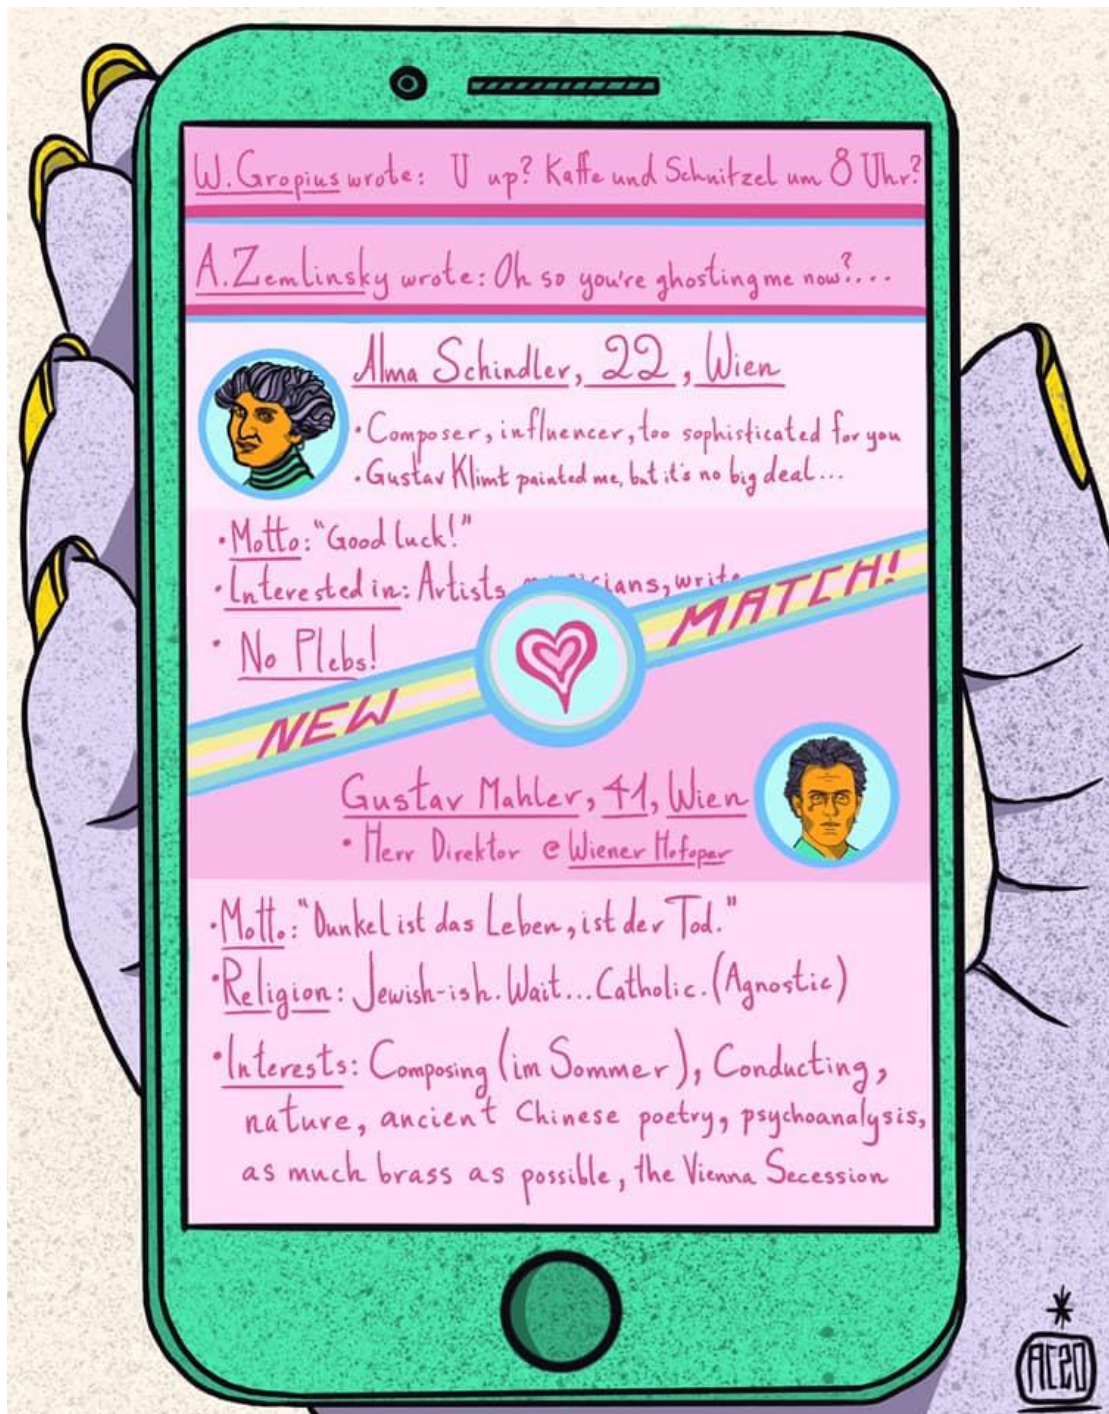 W. Gropius wrote: U up? Kaffe und Schnitzel um 8 Uhr?
A. Zemlinsky wrote: Oh so you're ghosting me now?....
Alma Schindler, 22, Wien
• Composer, influencer, too sophisticated for you
• Gustav Klimt painted me, but it's no big deal...
• Motto: "Good luck!"
• Interested in: Artists,
• No Plebs!
NEW MATCH!
Gustav Mahler, 41, Wien
• Herr Direktor @ Wiener Hofoper
• Motto: "Dunkel ist das Leben, ist der Tod."
• Religion: Jewish-ish. Wait... Catholic. (Agnostic)
• Interests: Composing (im Sommer), Conducting,
nature, ancient Chinese poetry, psychoanalysis,
as much brass as possible, the Vienna Secession
AC20